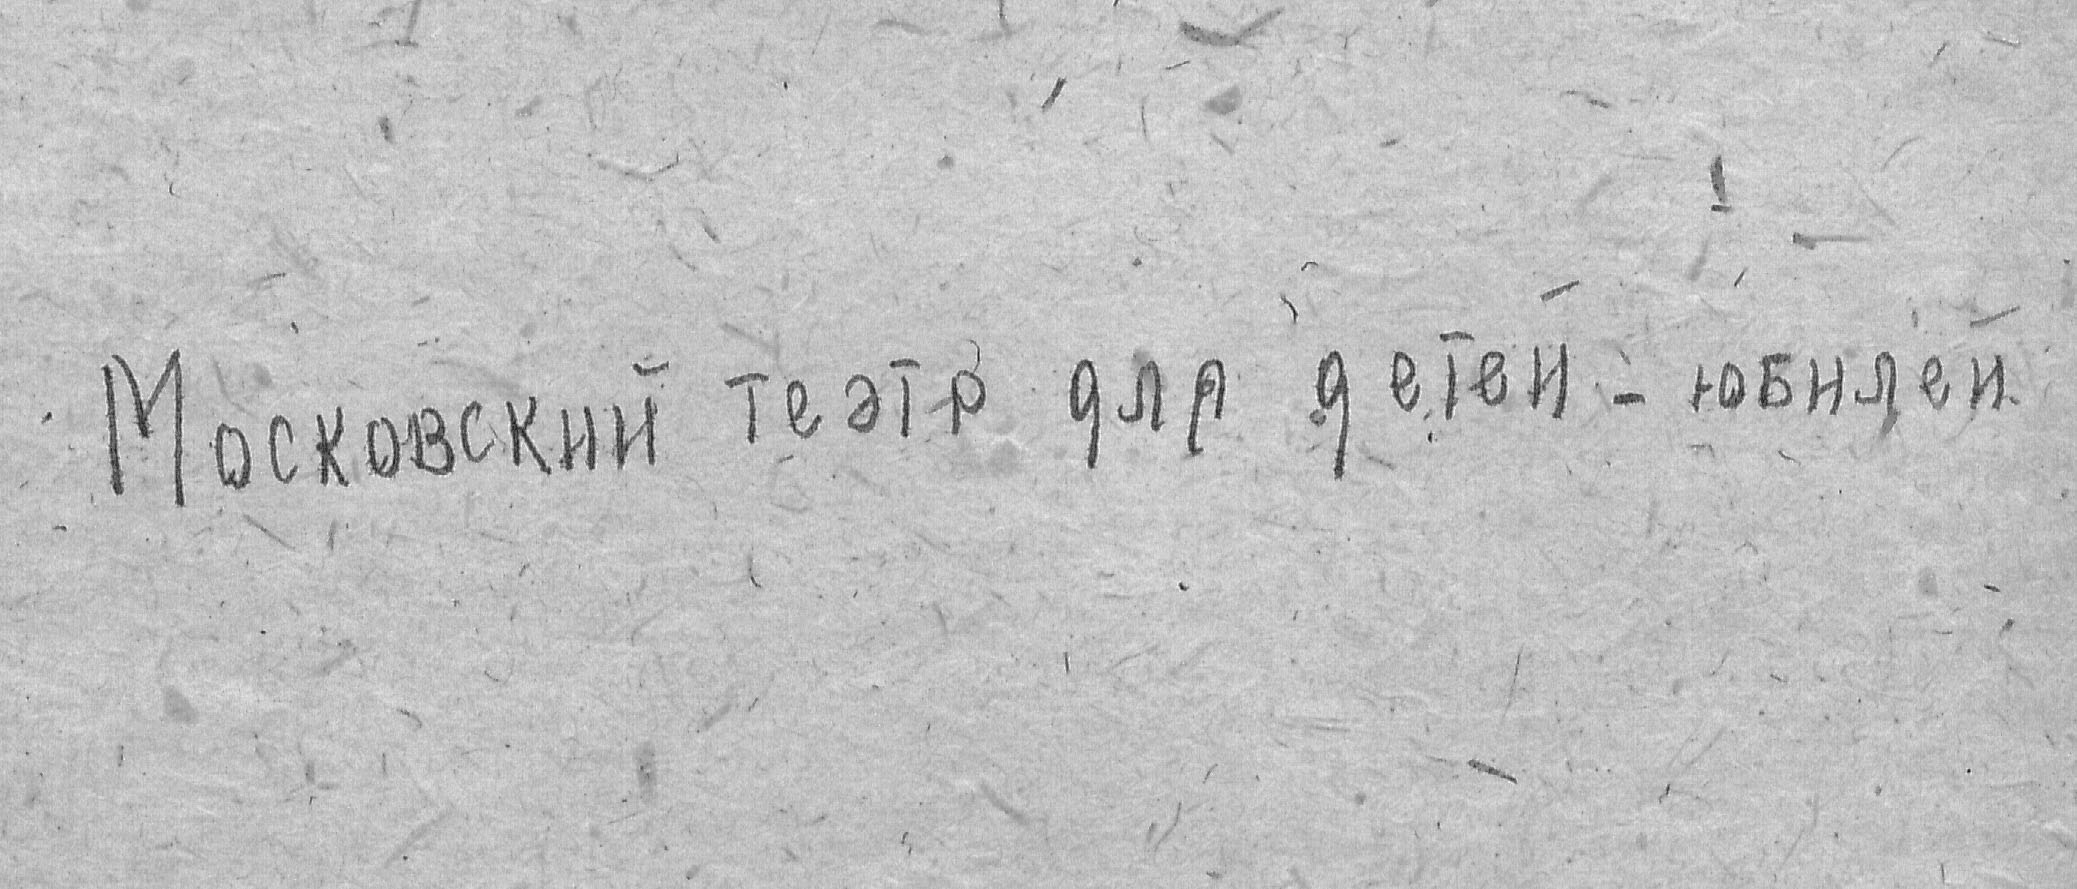 Московский театр для детей - юбилей